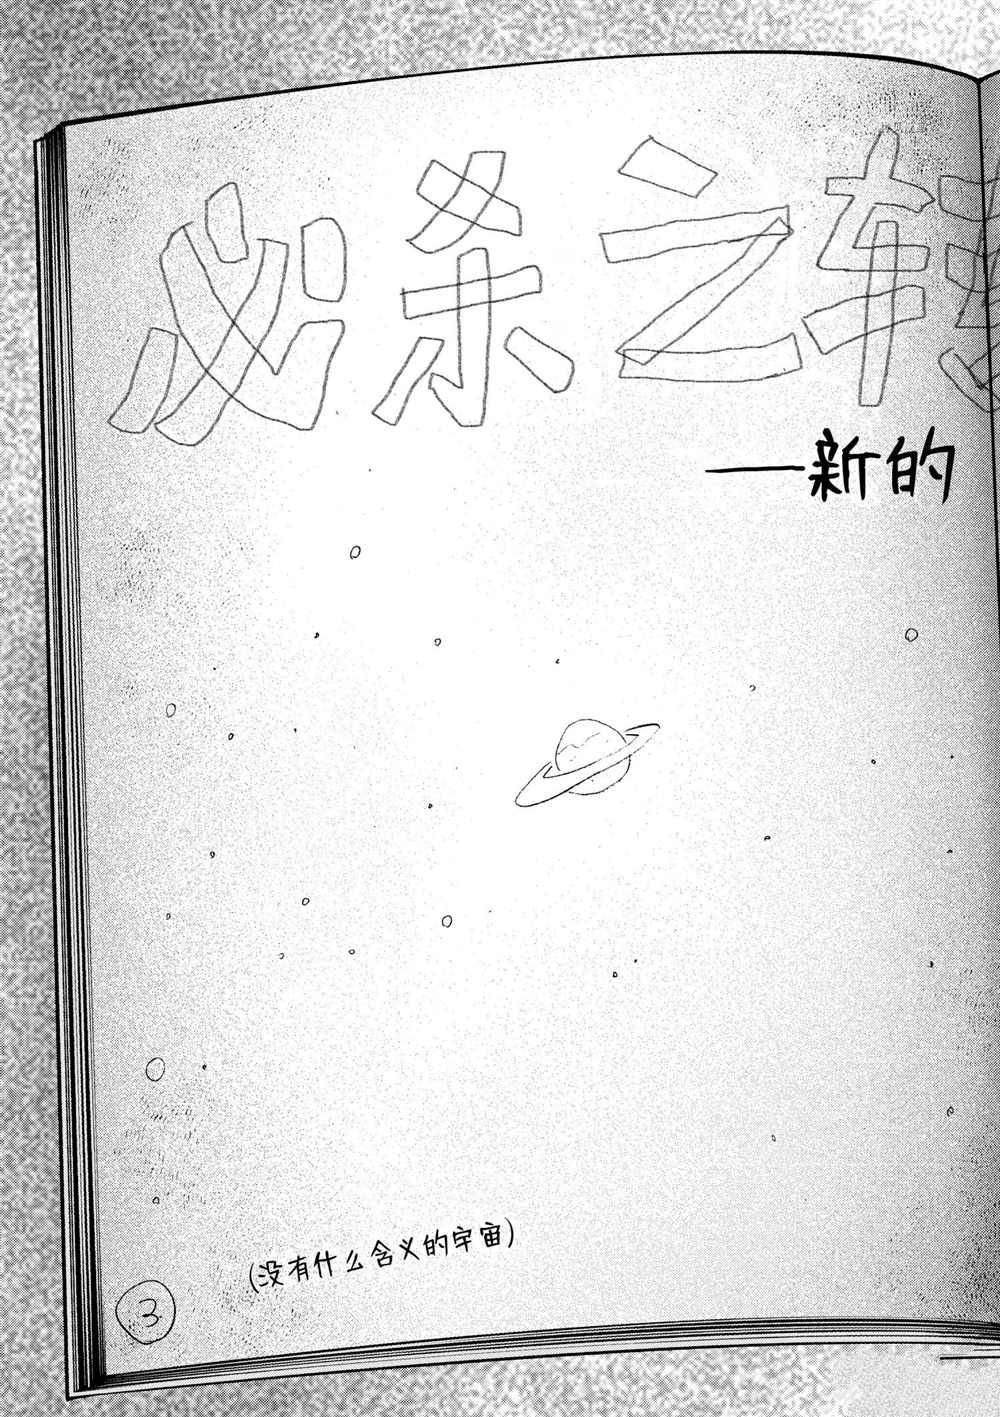 必杀之转
——新的
(没有什么含义的宇宙)
3